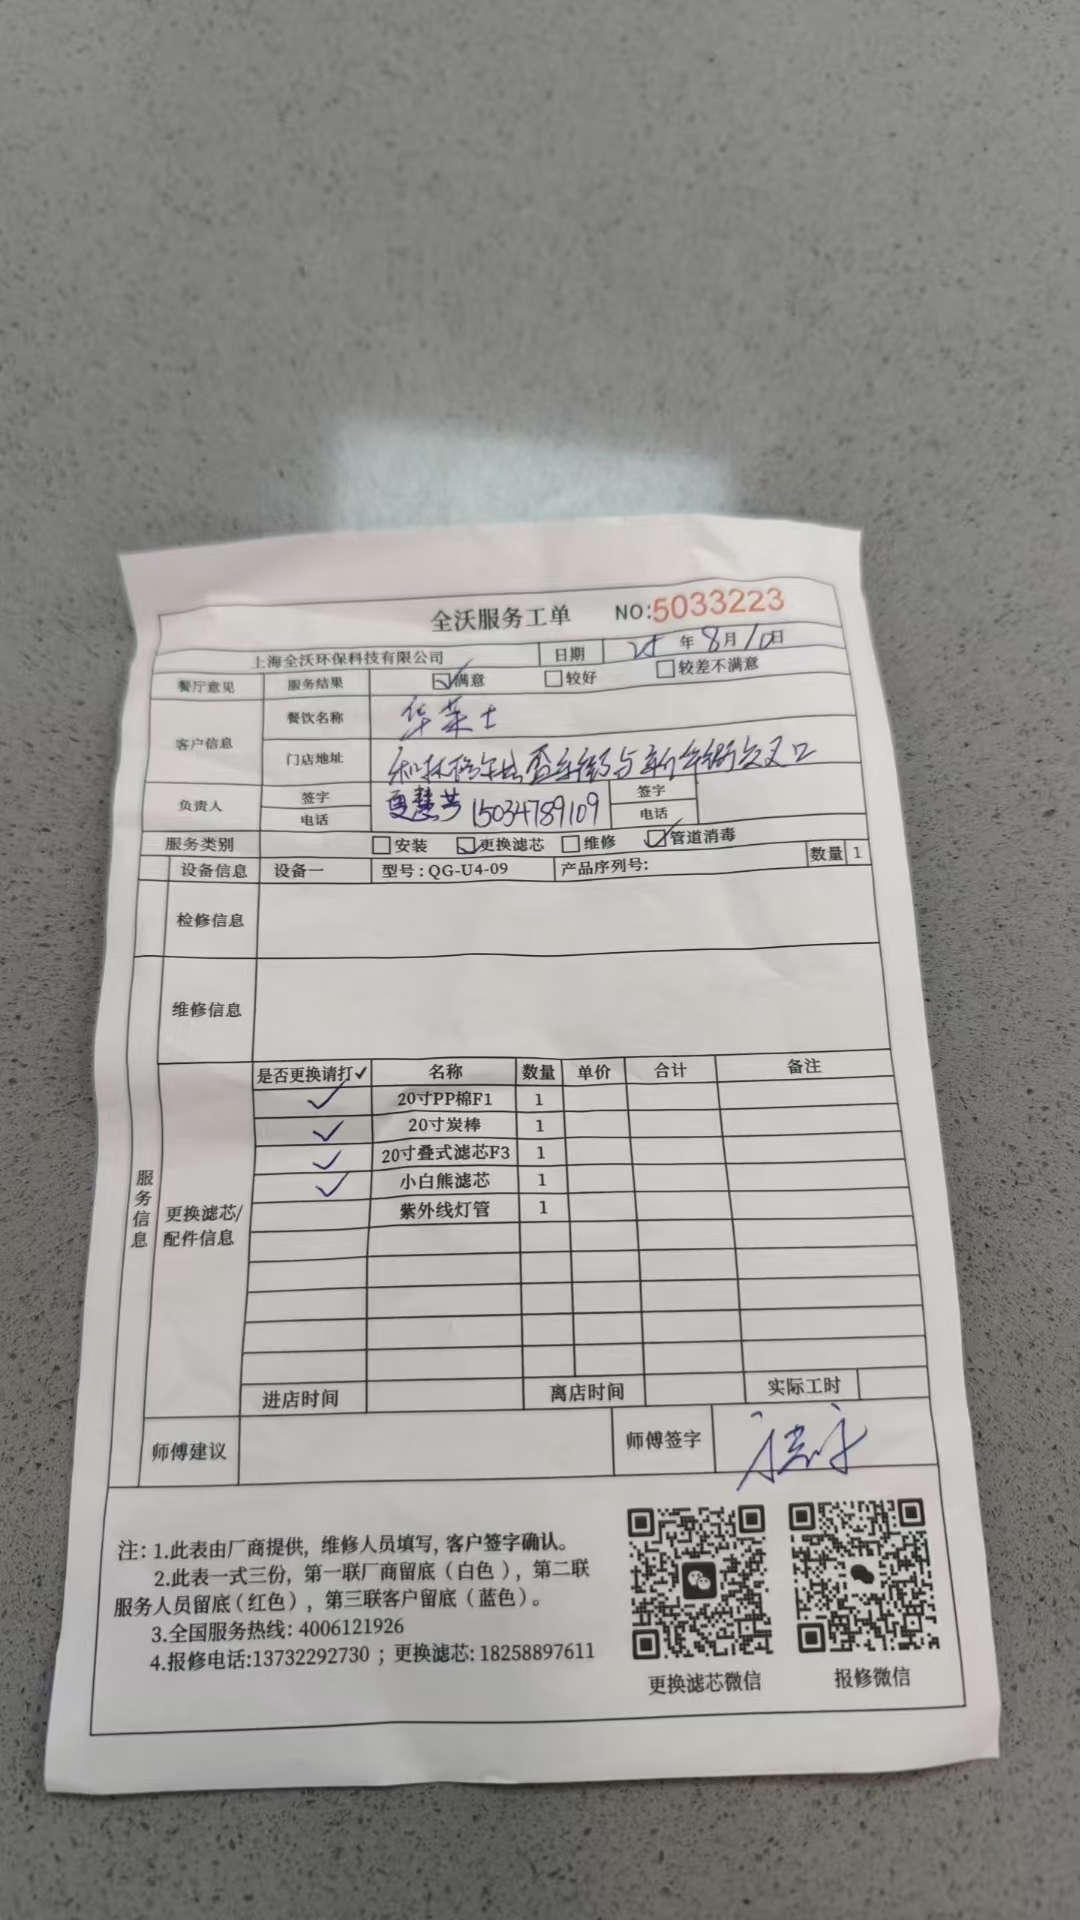 全沃服务工单 NO:5033223
上海全沃环保科技有限公司 日期 25年8月10日
餐厅意见 服务结果 ☑满意 □较好 □较差不满意
客户信息 餐饮名称 华莱士
门店地址 和林格尔县盛乐街与新华街交叉口
负责人 签字 夏慧芳 签字
电话 15034789109 电话
服务类别 □安装 ☑更换滤芯 □维修 ☑管道消毒
设备信息 设备一 型号:QG-U4-09 产品序列号: 数量 1
检修信息
维修信息
服务信息
更换滤芯/配件信息
是否更换请打✓ 名称 数量 单价 合计 备注
✓ 20寸PP棉F1 1
✓ 20寸炭棒 1
✓ 20寸叠式滤芯F3 1
✓ 小白熊滤芯 1
紫外线灯管 1
进店时间 离店时间 实际工时
师傅建议 师傅签字
注: 1.此表由厂商提供, 维修人员填写, 客户签字确认。
2.此表一式三份, 第一联厂商留底(白色), 第二联
服务人员留底(红色), 第三联客户留底(蓝色)。
3.全国服务热线: 4006121926
4.报修电话:13732292730 ; 更换滤芯: 18258897611
更换滤芯微信 报修微信